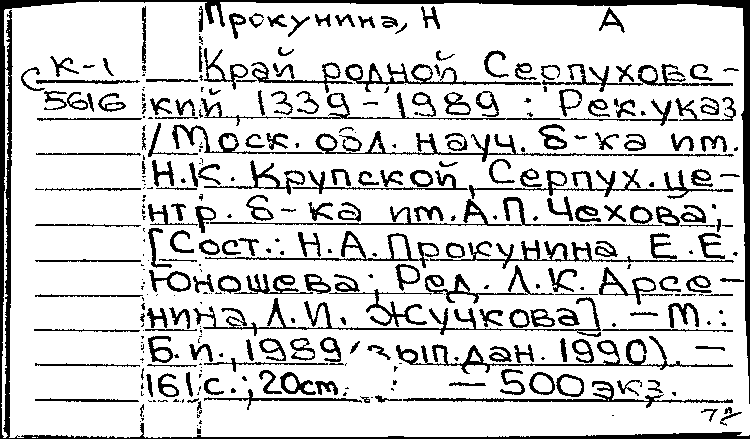 Прокунина, Н А
К-1 Край родной Серпуховс-
5616 кий, 1339-1989 : Рек. указ.
/Моск. обл. науч. б-ка им.
Н.К. Крупской, Серпух. це-
нтр. б-ка им. А.П. Чехова;
[Сост.: Н.А. Прокунина, Е.Е.
Юношева; Ред. Л.К. Арсе-
нина, Л.И. Жучкова]. — М.:
Б.и., 1989 вып. дан. 1990). —
161 с.; 20 cm. — 500 экз.